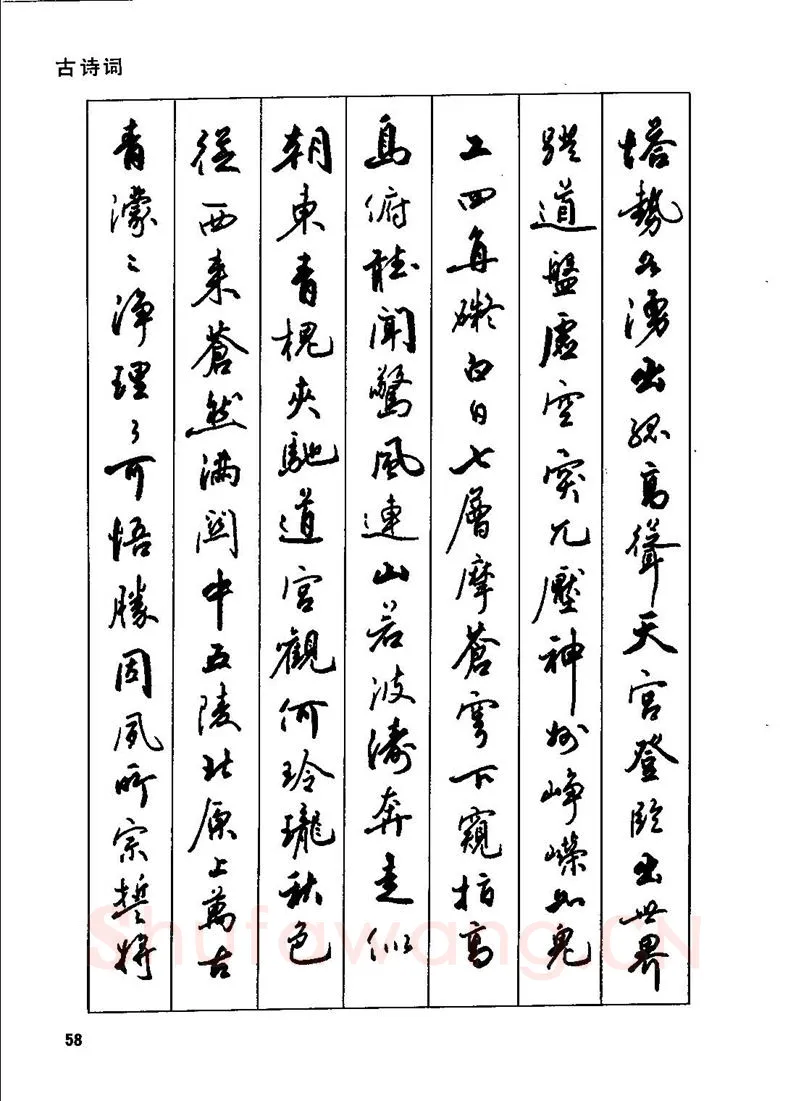 古诗词
塔勢如湧出孤高聳天宮登臨出世界
蹬道盤虛空突兀壓神州崢嶸如鬼
工四角礙白日七層摩蒼穹下窺指高
鳥俯聽聞驚風連山若波濤奔走似
朝東青槐夾馳道宮觀何玲瓏秋色
從西來蒼然滿關中五陵北原上萬古
青濛々淨理了可悟勝因夙所宗誓將
58
Shufawang.CN